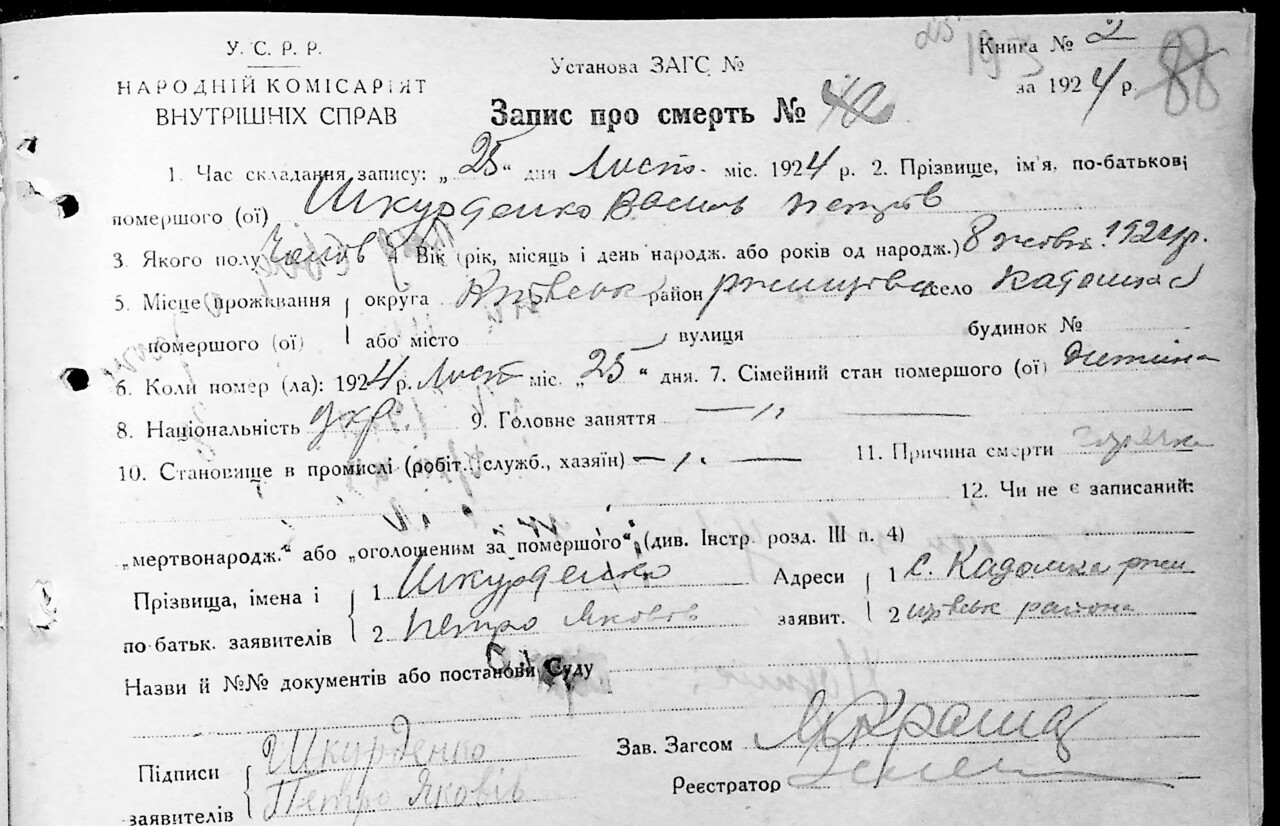 У. С. Р. Р.
НАРОДНІЙ КОМІСАРІЯТ
ВНУТРІШНІХ СПРАВ
Установа ЗАГС №
Книга № 2
195
за 1924 р.
88
Запис про смерть № 42
1. Час складання запису: „25“ дня Лист. міс. 1924 р. 2. Прізвище, ім'я, по-батькові
помершого (ої) Шкурденко Василь Петров
3. Якого полу Чолов 4. Вік (рік, місяць і день народж. або років од народж.) 8 жовт. 1924р.
5. Місце проживання помершого (ої) округа Київськ район Ржищівськ село Кадомка
або місто вулиця будинок №
6. Коли помер (ла): 1924 р. Лист міс. „25“ дня. 7. Сімейний стан помершого (ої) дитина
8. Національність укр. 9. Головне заняття — „ —
10. Становище в промислі (робіт., служб., хазяїн) — „ — 11. Причина смерти
12. Чи не є записаний:
„мертвонародж.“ або „оголошеним за помершого“, (див. Інстр. розд. III п. 4)
Прізвища, імена і по батьк. заявителів 1 Шкурденко Адреси заявит. 1 с. Кадомка ржи
2 Петро Яковів 2 щівськ района
Назви й №№ документів або постанови Суду
Підписи заявителів Шкурденко
Петро Яковів
Зав. Загсом
Реєстратор